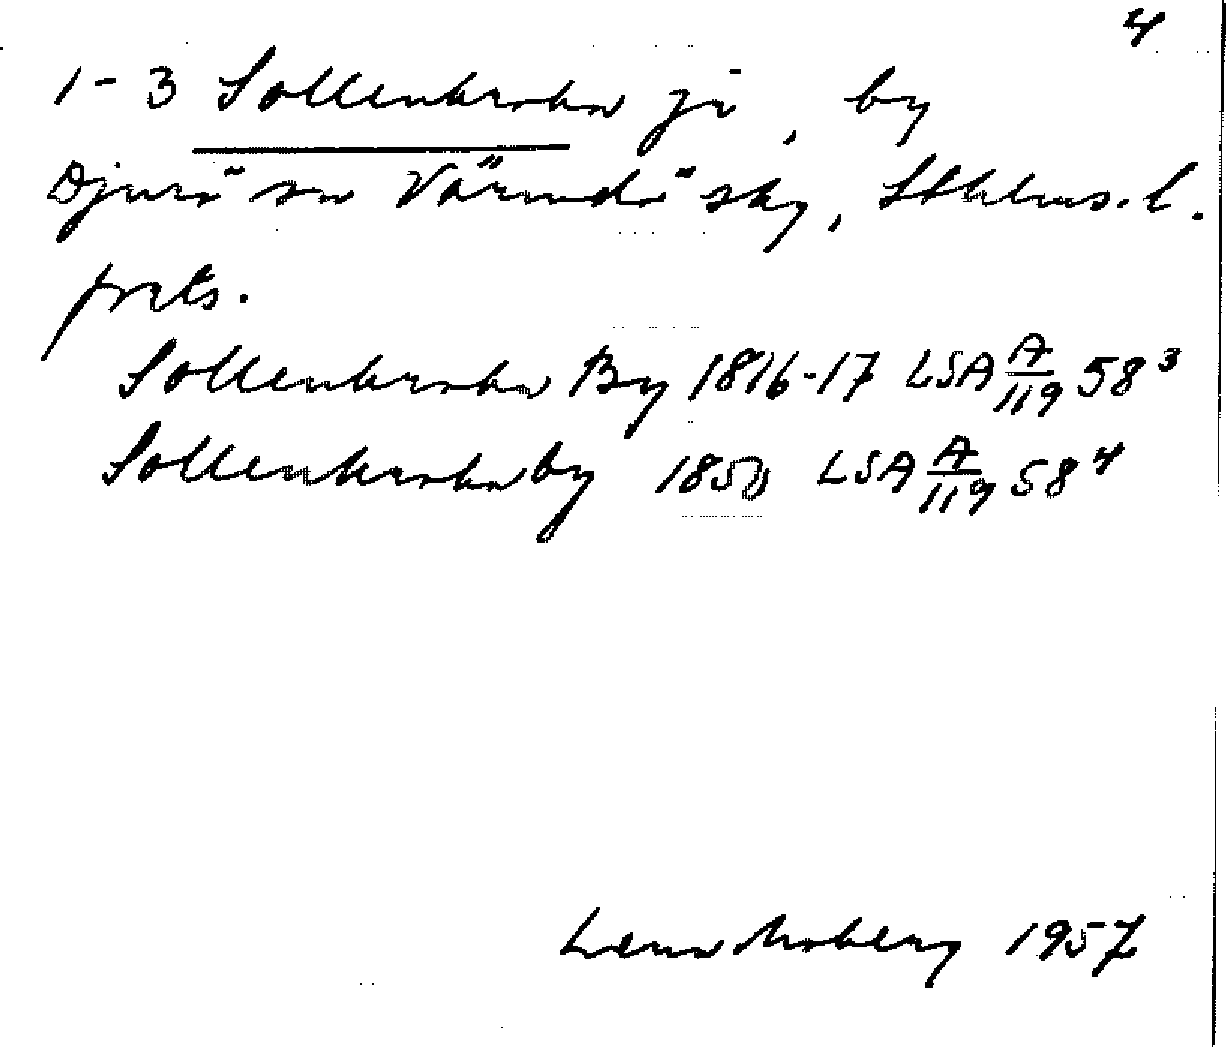 4
1-3 Sollenkroka jr, by
Djurö sn Värmdö skg, Sthlms. l.
forts.
Sollenkroka By 1816-17 LSA A/119 58³
Sollenkroka by 1850 LSA A/119 58⁴
Lena Moberg 1957